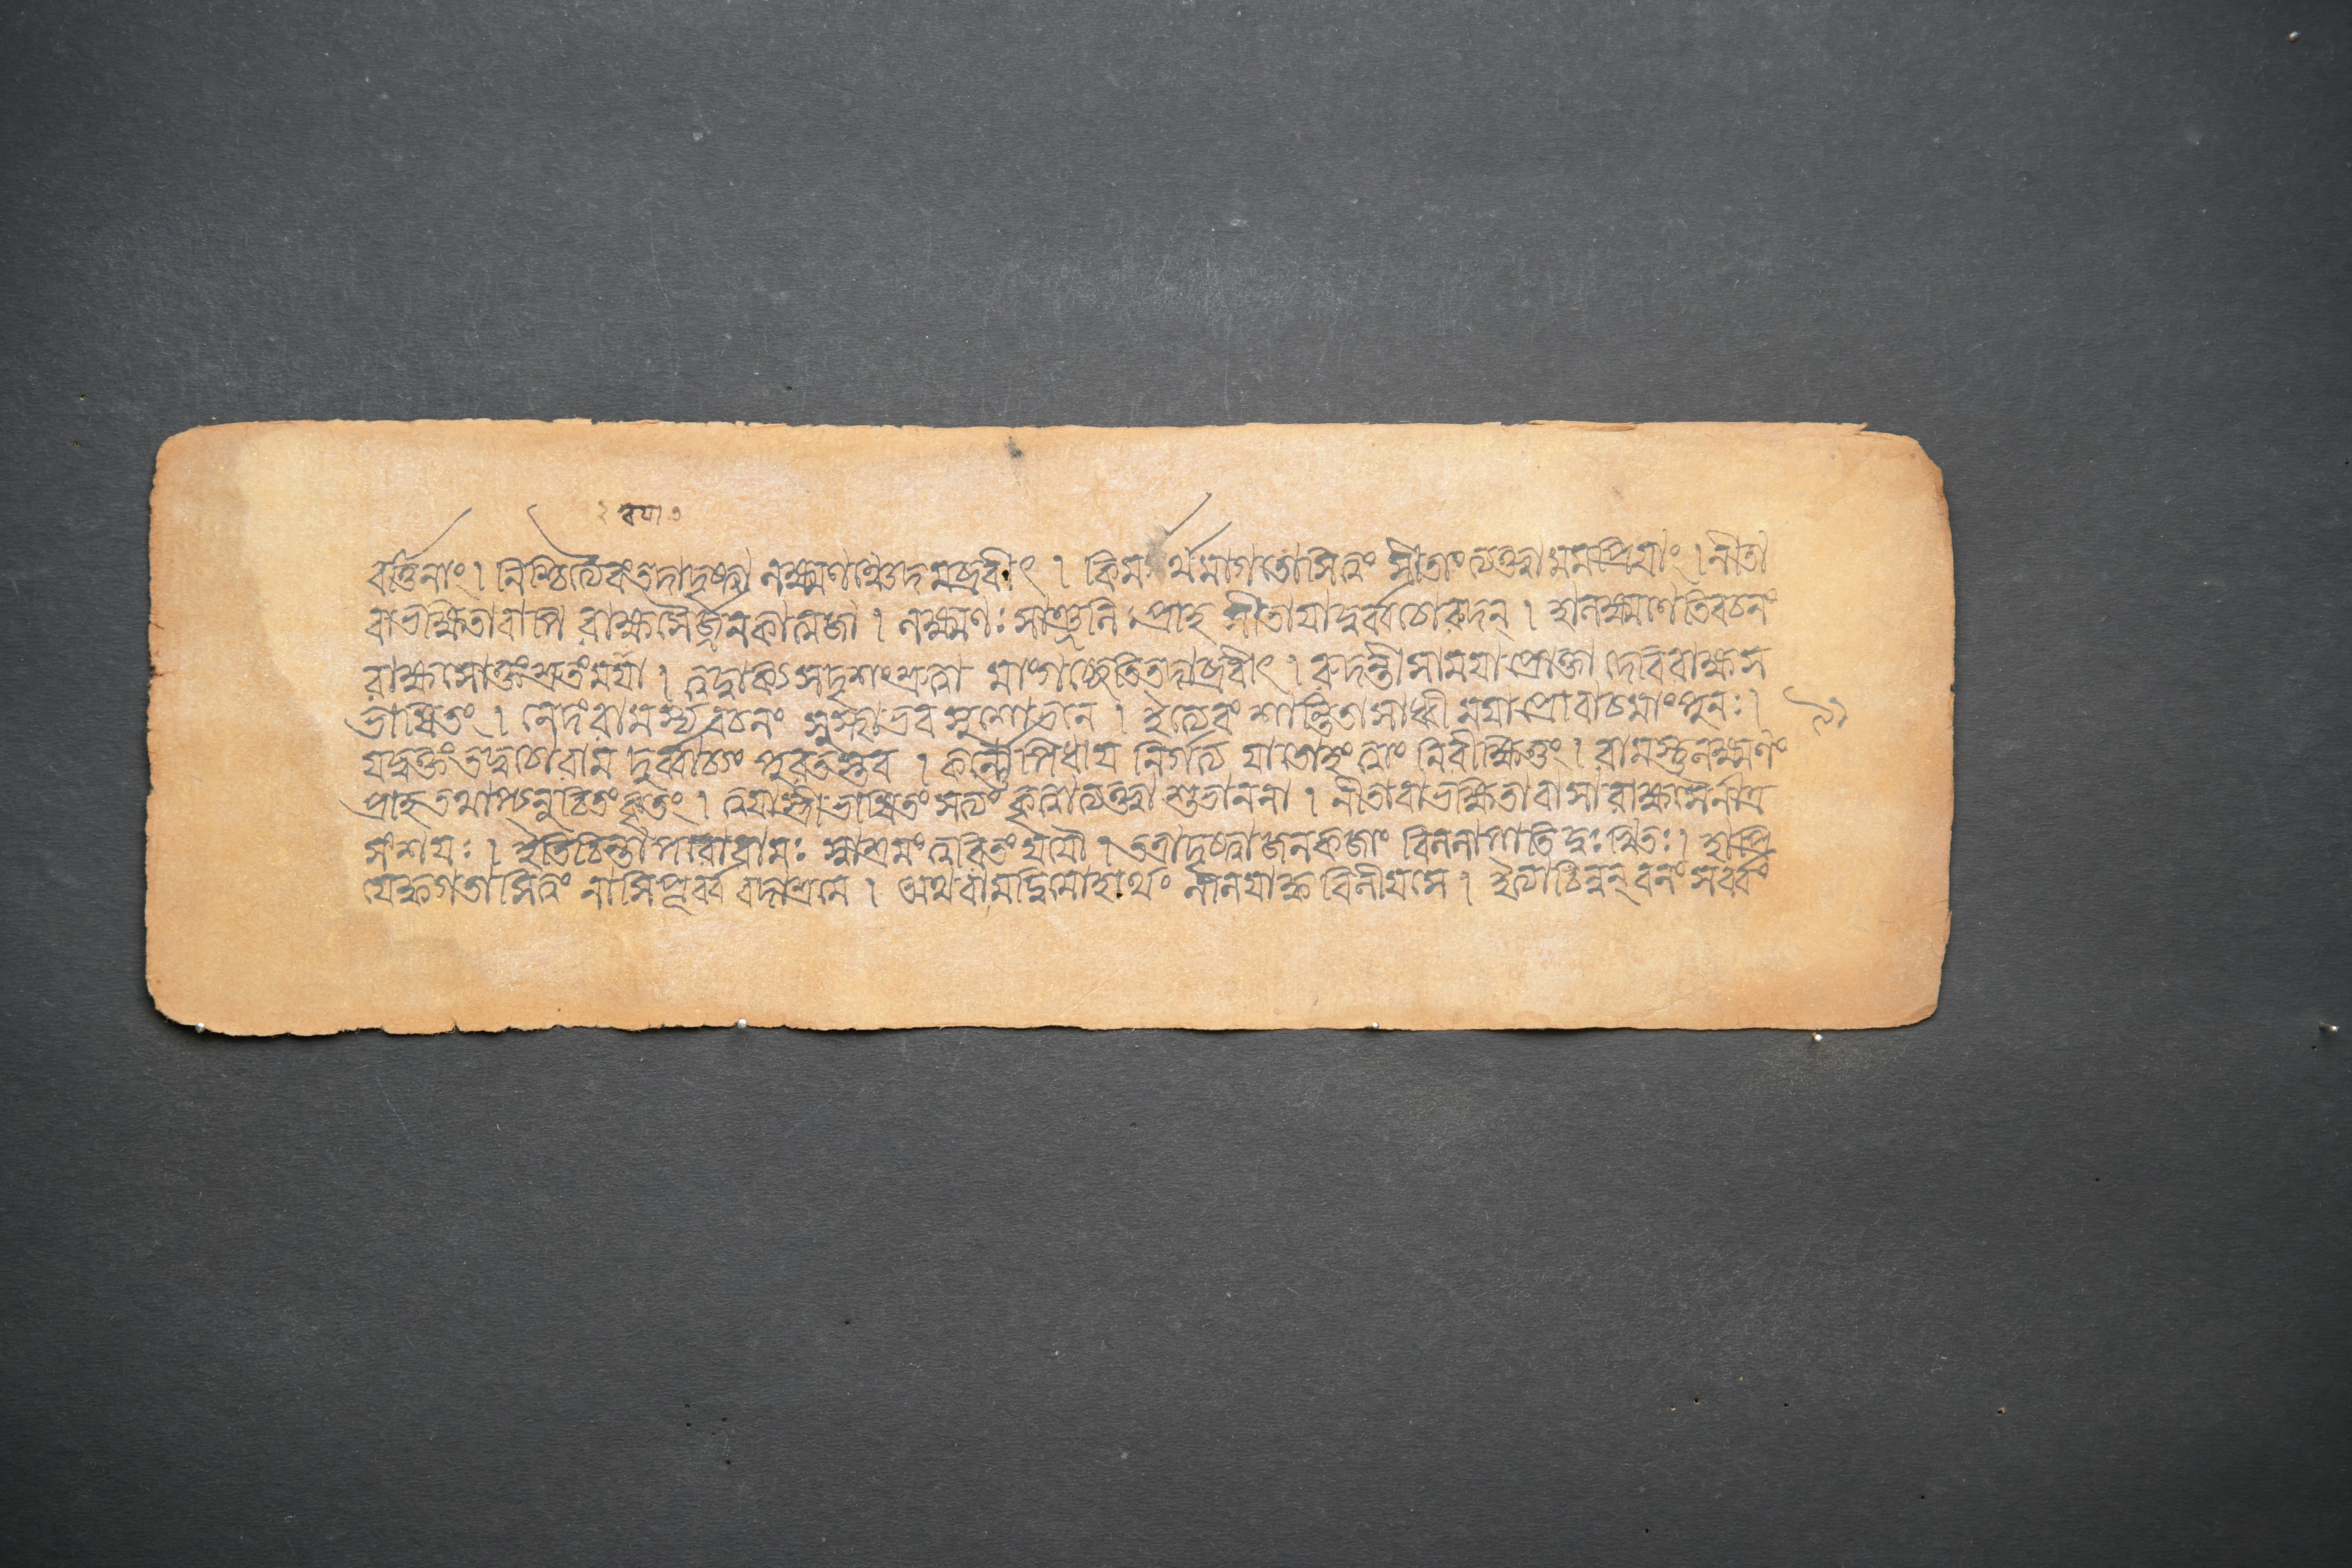 বর্ত্তিনাং । নিশ্চিত্যৈবং তদাদৃষ্ট্বা লক্ষ্মণঞ্চেদমব্রবীৎ । কিমর্থমাগতোসিত্বং সীতাং ত্যক্ত্বা মমপ্রিযাং । নীতা
বাভক্ষিতাবাপি রাক্ষসৈর্জনকাত্মজা । লক্ষ্মণঃ সাশ্রুনিঃ প্রাহ সীতাযাদুর্ব্বচোরুদন্ । হালক্ষ্মণেতিবচনং
রাক্ষসোক্তং শ্রুতংমযা । ত্বদ্বাক্যসদৃশংশ্রুত্বা মাংগচ্ছেতিতদাব্রবীৎ । রুদন্তীসামযাপ্রোক্তা দেবিরাক্ষস
ভাষিতং । নেদংরামস্যবচনং সুস্থাভব সুশোভনে । ইত্যেবং শান্ত্বিতাসাধ্বী মযাপ্রোবাচমাংপুনঃ ।
যদ্বক্তংতদ্বচোরাম দুর্ব্বাচ্যং পুরতস্তব । কর্ণৌপিধায নির্গত্য যাতোহং ত্বাং নিবীক্ষিতুং । রামস্তুলক্ষ্মণং
প্রাহ তথাপ্যনুচিতং কৃতং । ত্বযাস্ত্রীভাষিতং সত্যং কৃত্বাত্যক্ত্বা শুভাননা । নীতাবাভক্ষিতাবাসা রাক্ষসৈর্নাত্র
সংশযঃ । ইতিচিন্তাপরোরামঃ স্বাশ্রমং ত্বরিতং যযৌ । তত্রাদৃষ্ট্বাজনকজাং বিললাপাতিদুঃখিতঃ । হাপ্রি
যেক্বগতাসিত্বং নাসিপূর্ব্ববদাশ্রমে । অথবামদ্বিমোহার্থং লীলযাক্ব বিলীযসে । ইত্যাচিন্বন্ বনং সর্ব্বং